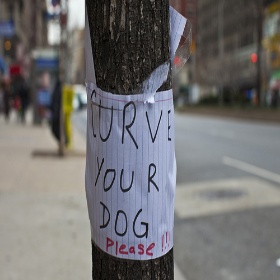 CURVE
YOUR
DOG
Please !!!